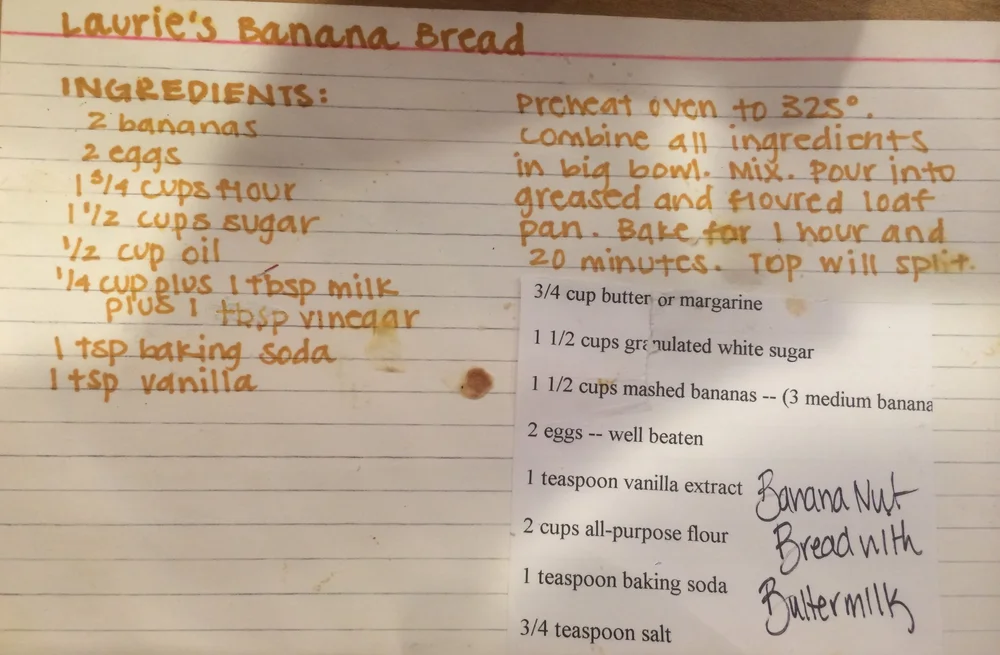 Laurie's Banana Bread
INGREDIENTS:
2 bananas
2 eggs
1 3/4 cups flour
1 1/2 cups sugar
1/2 cup oil
1/4 cup plus 1 tbsp milk
plus 1 tbsp vinegar
1 tsp baking soda
1 tsp vanilla
Preheat oven to 325°.
Combine all ingredients
in big bowl. Mix. Pour into
greased and floured loaf
pan. Bake for 1 hour and
20 minutes. Top will split.
3/4 cup butter or margarine
1 1/2 cups granulated white sugar
1 1/2 cups mashed bananas -- (3 medium banana
2 eggs -- well beaten
1 teaspoon vanilla extract
2 cups all-purpose flour
1 teaspoon baking soda
3/4 teaspoon salt
Banana Nut
Bread with
Buttermilk